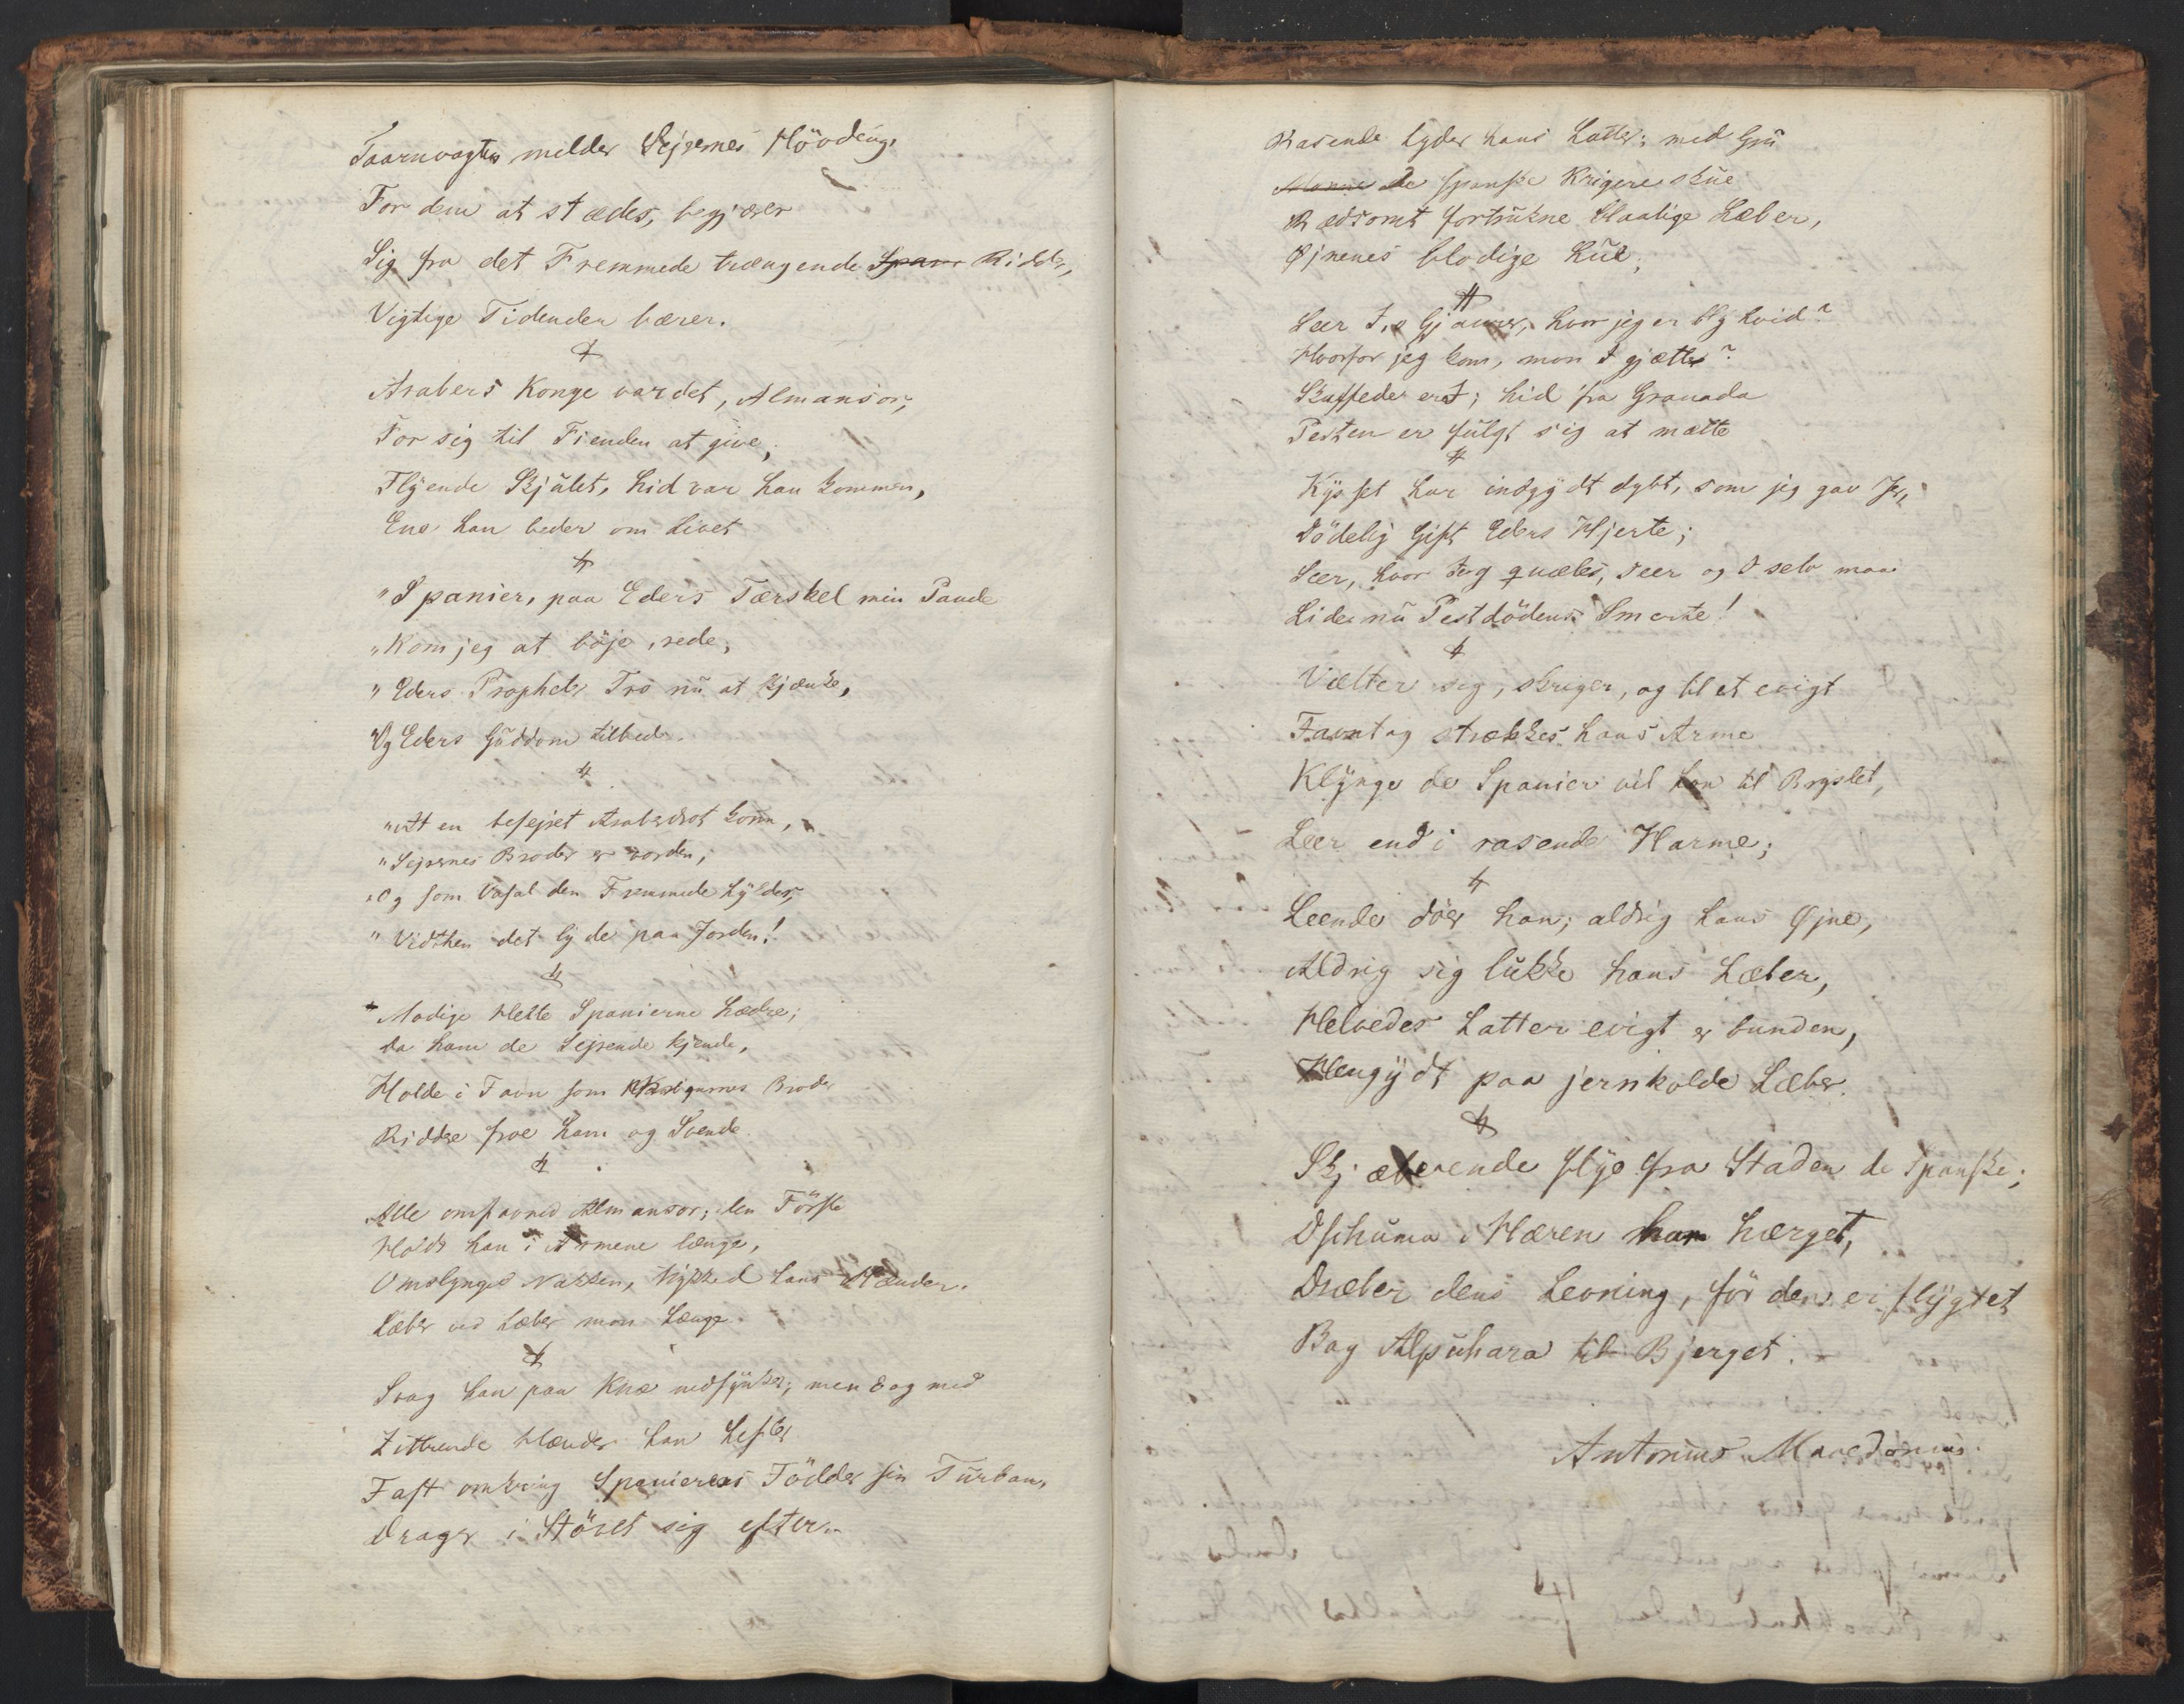 Taarnvagten melder Sejrernes Hövding,
For dem at stædes, begjærer
Sig fra det Fremmede trængende Spans Ridder,
Vigtige Tidenden bærer.
Arabers Konge var det, Almansor,
For sig til Fienden at give,
Flyende Skjulet, hid var han kommen,
Ene han beder om Livet
"Spanier, paa Eders Tærskel min Pande
"Kom jeg at böje rede,
"Eders Prophets Tro nu at skjænke,
"Og Eders Guddom tilbede.
"At en besejret Araberdrot kom,
"Sejrernes Broder er vorden,
"Og som Vasal den Fremmede hylder,
"Vidthen det lyde paa Jorden!
Modige Helte Spanierne hædre;
Da ham de Sejrende kjende,
Holde i Favn som Krigernes Broder
Riddere froe ham og Svende.
Alle omfavned Almansor; den Förste
Holdt han i Armene længe,
Omslynged Nakken, trykked hans Hænder.
Læber ved Læber mon hænge.
Svag han paa Knæ nedsynker; men dog med
Zittrende Hænder han hefter
Fast omkring Spanierens Födder sin Turban,
Drager i Stövet sig efter.
Rasende lyder hans Latter; med Gru
Monne de spanske Krigere skue
Rædsomt fortrukne blaalige Læber,
Øjnenes blodige Kue,
Seer I, o Gjaurer, hvor jeg er blyhvid?
Hvorfor jeg kom, mon I gjætte?
Skuffede er I; hid fra Granada
Pesten er fulgt sig at mætte
Kysset har indgydt dybt, som jeg gav Jer,
Dödelig Gift Eders Hjerte;
Seer, hvor jeg quæles, seer og I selv maae
Lide nu Pestdödens Smerte!
Vælter sig, skriger, og til et evigt
Favntag strækkes hans Arme
Klynge de Spanier vil han til Brystet,
Leer end i rasende Harme;
Leende döer han; aldrig hans Øjne,
Aldrig sig lukke hans Læber,
Helvedes Latter evigt er bunden,
Hengydt paa jernkolde Læber.
Skjælvende flye fra Staden de Spanske;
Dschuma i Hæren har hærget,
Dræber dens Levning, för den er flygtet
Bag Alpuhara til Bjerget.
Antonius Macedonius.